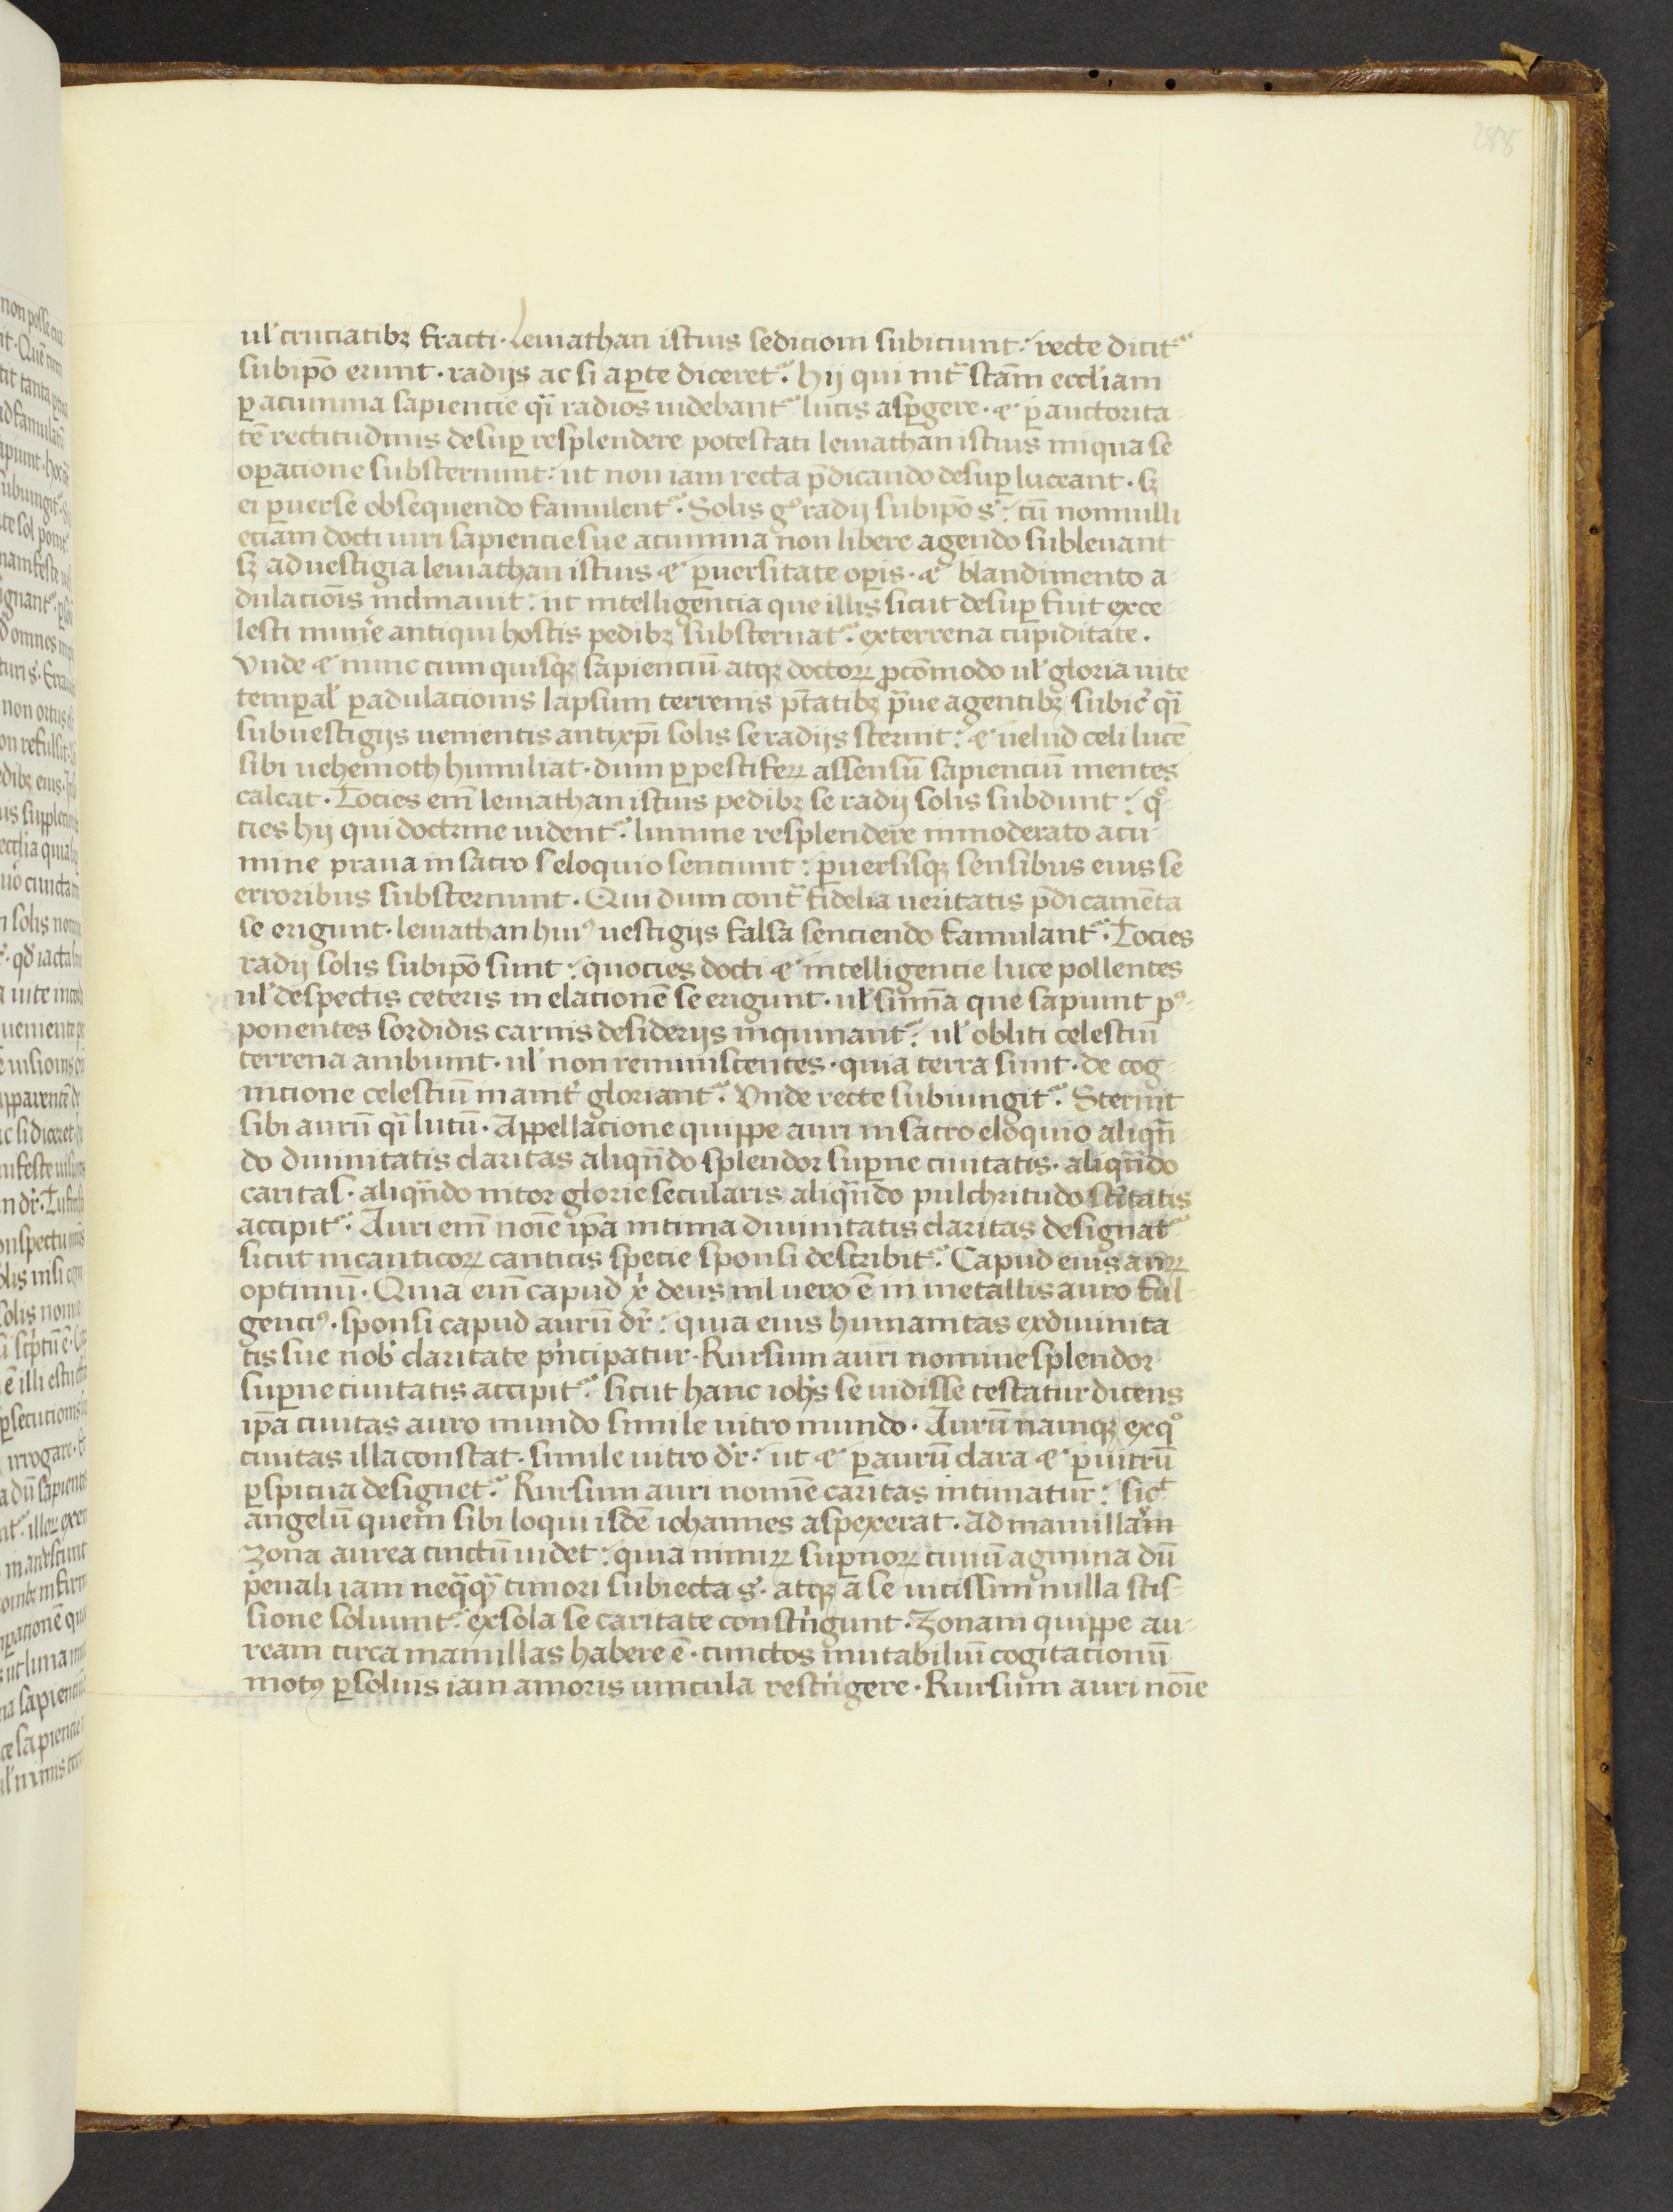 288
ul' cruciatibꝫ fracti · Leuiathan istius sedicioni subiciunt : recte dicit᷑
sub ipo̅ erunt · radijs ac si aꝑte diceret᷑ : Hij qui int̾ sc̅am eccl'iam
ꝑ acumina sapiencie qͣi radios uidebant᷑ lucis asꝑgere · ⁊ ꝑ auctorita-
te̅ rectitudinis desuꝑ resplendere potestati leuiathan istius iniqua se
oꝑacione substernunt : ut non iam recta p̅dicando desuꝑ luceant · sꝫ
ei ꝑuerse obsequendo famulent᷑ · Solis gͦ radij sub ipo̅ s̾ : cu̅ nonnulli
etiam docti uiri sapiencie sue acumina non libere agendo subleuant
sꝫ ad uestigia leuiathan istius ⁊ ꝑuersitate oꝑis · ⁊ blandimento a-
dulacio̅is inclinauit : ut intelligencia que illis sicut desuꝑ fuit ex ce-
lesti mun̾e antiqui hostis pedibꝫ substernat᷑ · ex terrena cupiditate ·
Vnde ⁊ nunc cum quisqꝫ sapienciu̅ atqꝫ doctoꝝ ꝓ co̅modo ul' gloria uite
temꝑal' ꝑ adulacionis lapsum terrenis pt̅atibꝫ p̅ue agentibꝫ subic̾ qͣi
sub uestigijs uenientis antixp̅i solis se radijs sternit : ⁊ uelud celi luce̅
sibi uehemoth humiliat · dum ꝑ pestifeꝝ assensu̅ sapienciu̅ mentes
calcat · Tocies em̅ leuiathan istius pedibꝫ se radij solis subdunt : qͦ-
cies hij qui doctrine uident᷑ : lumine resplendere inmoderato acu-
mine praua in sacro s eloquio senciunt : ꝑuersisqꝫ sensibus eius se
erroribus substernunt · Qui dum cont̾ fidelia ueritatis p̅dicame̅ta
se erigunt · leuiathan huiꝰ uestigijs falsa senciendo famulant᷑ · Tocies
radij solis sub ipo̅ sunt : quocies docti ⁊ intelligencie luce pollentes
ul' despectis ceteris in elacione̅ se erigunt · ul' sum̅a que sapiunt pꝰ-
ponentes sordidis carnis desiderijs inquinant᷑ : ul' obliti celestiu̅
terrena ambiunt · ul' non reminiscentes · quia terra sunt · de cog-
nicione celestiu̅ inanit̾ gloriant᷑ · Vnde recte subiungit᷑ · Sternit
sibi auru̅ qͣi lutu̅ · Appellacione quippe auri in sacro eloquio aliqn̅-
do diuinitatis claritas aliqn̅do splendor suꝑne ciuitatis · aliqn̅do
caritas · aliqn̅do nitor glorie secularis aliqn̅do pulchritudo sc̅itatis
accipit᷑ · Auri em̅ no̅ie ip̅a intima diuinitatis claritas designat᷑
sicut in canticoꝝ canticis specie sponsi describit᷑ · Capud eius auꝝ
optimu̅ · Quia em̅ capud x̾ deus nil uero e̅ in metallis auro ful-
genciꝰ · sponsi capud auru̅ dr̾ : quia eius humanitas ex diuinita-
tis sue nob̾ claritate pͥncipatur · Rursum auri nomine splendor
suꝑne ciuitatis accipit᷑ : sicut hanc ioh̅s se uidisse testatur dicens
ip̅a ciuitas auro mundo simile uitro mundo · Auru̅ namqꝫ ex qͦ
ciuitas illa constat · simile uitro dr̾ : ut ⁊ ꝑ auru̅ clara ⁊ ꝑ uitru̅
ꝑspicua designet᷑ · Rursum auri nomi̅e caritas intimatur : sicͭ
angelu̅ quem sibi loqui isde̅ iohannes aspexerat · Ad mamillam
zona aurea cinctu̅ uidet : quia nimiꝝ suꝑnoꝝ ciuiu̅ agmina du̅
penali iam neqͣqͣ timori subiecta s̾ · atqꝫ a̅ se uicissim nulla scis-
sione soluunt᷑ : ex sola se caritate constͥngunt · Zonam quippe au-
ream circa mamillas habere e̅ · cunctos mutabiliu̅ cogitacionu̅
motꝰ ꝑ soliꝰ iam amoris uincula restͥngere · Rursum auri no̅ie